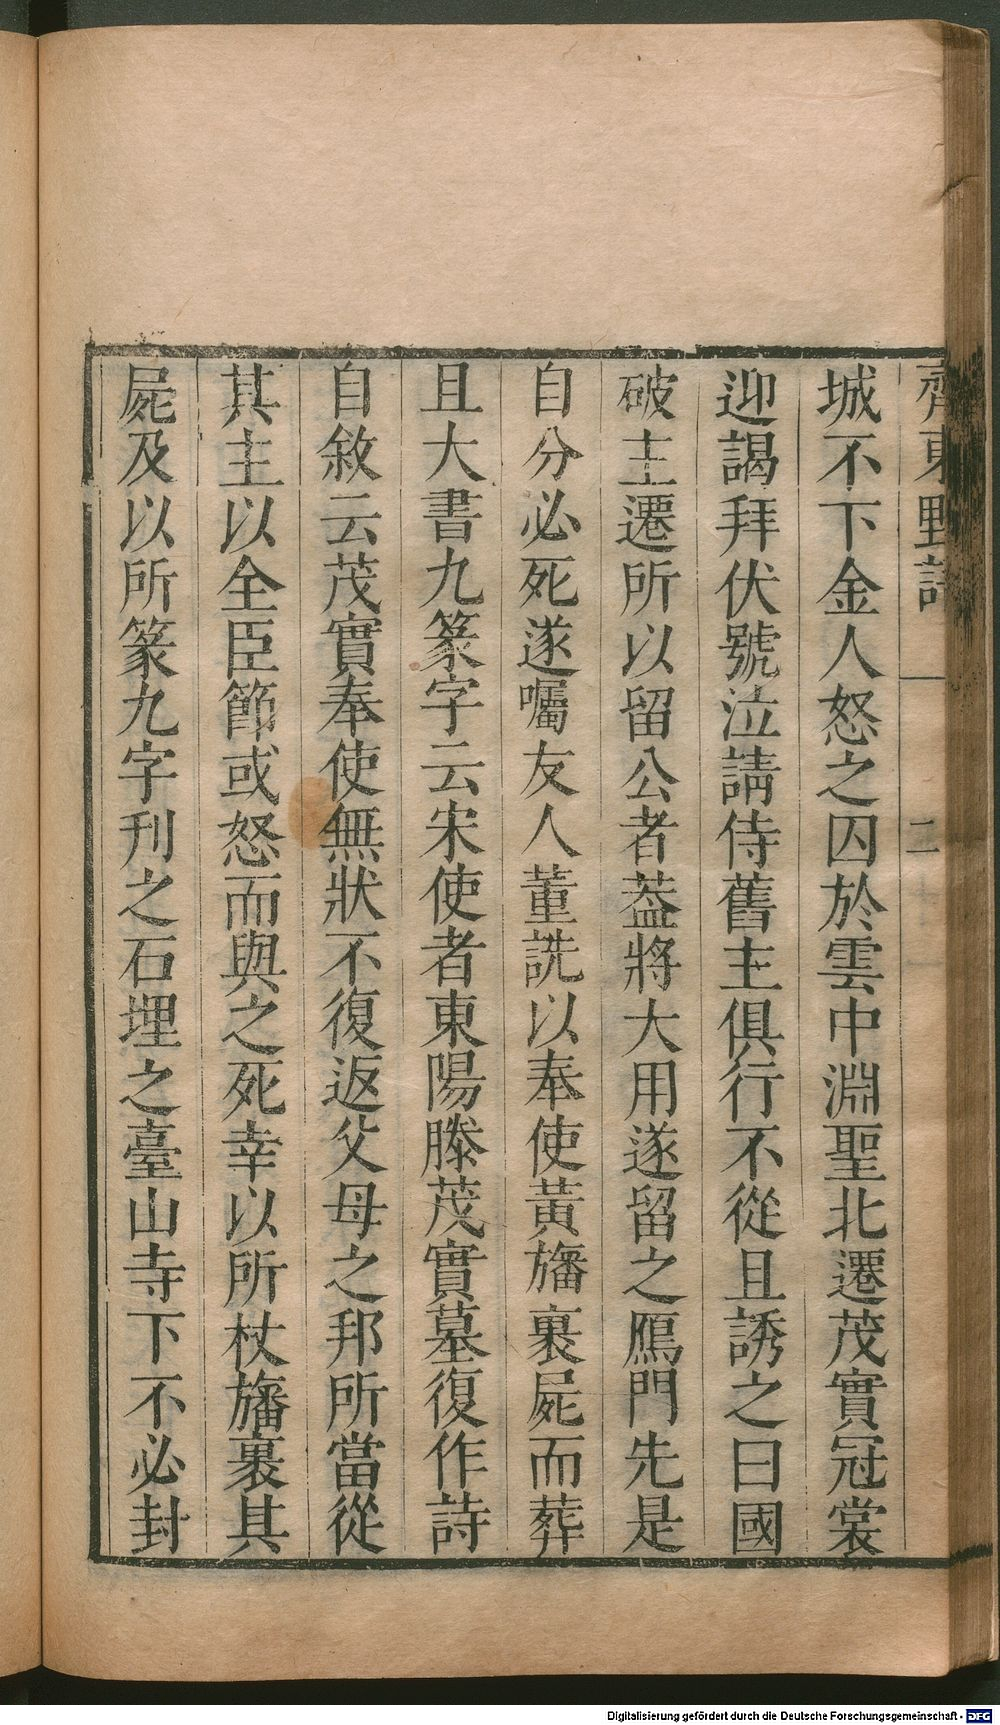 齊東野語
二
城不下金人怒之囚於雲中淵聖北遷茂實冠裳
迎謁拜伏號泣請侍舊主俱行不從且誘之曰國
破主遷所以留公者葢將大用遂留之鴈門先是
自分必死遂囑友人董詵以奉使黃旛裹屍而葬
且大書九篆字云宋使者東陽滕茂實墓復作詩
自敘云茂實奉使無狀不復返父母之邦所當從
其主以全臣節或怒而與之死幸以所杖旛裹其
屍及以所篆九字刊之石埋之臺山寺下不必封
Digitalisierung gefördert durch die Deutsche Forschungsgemeinschaft - DFG